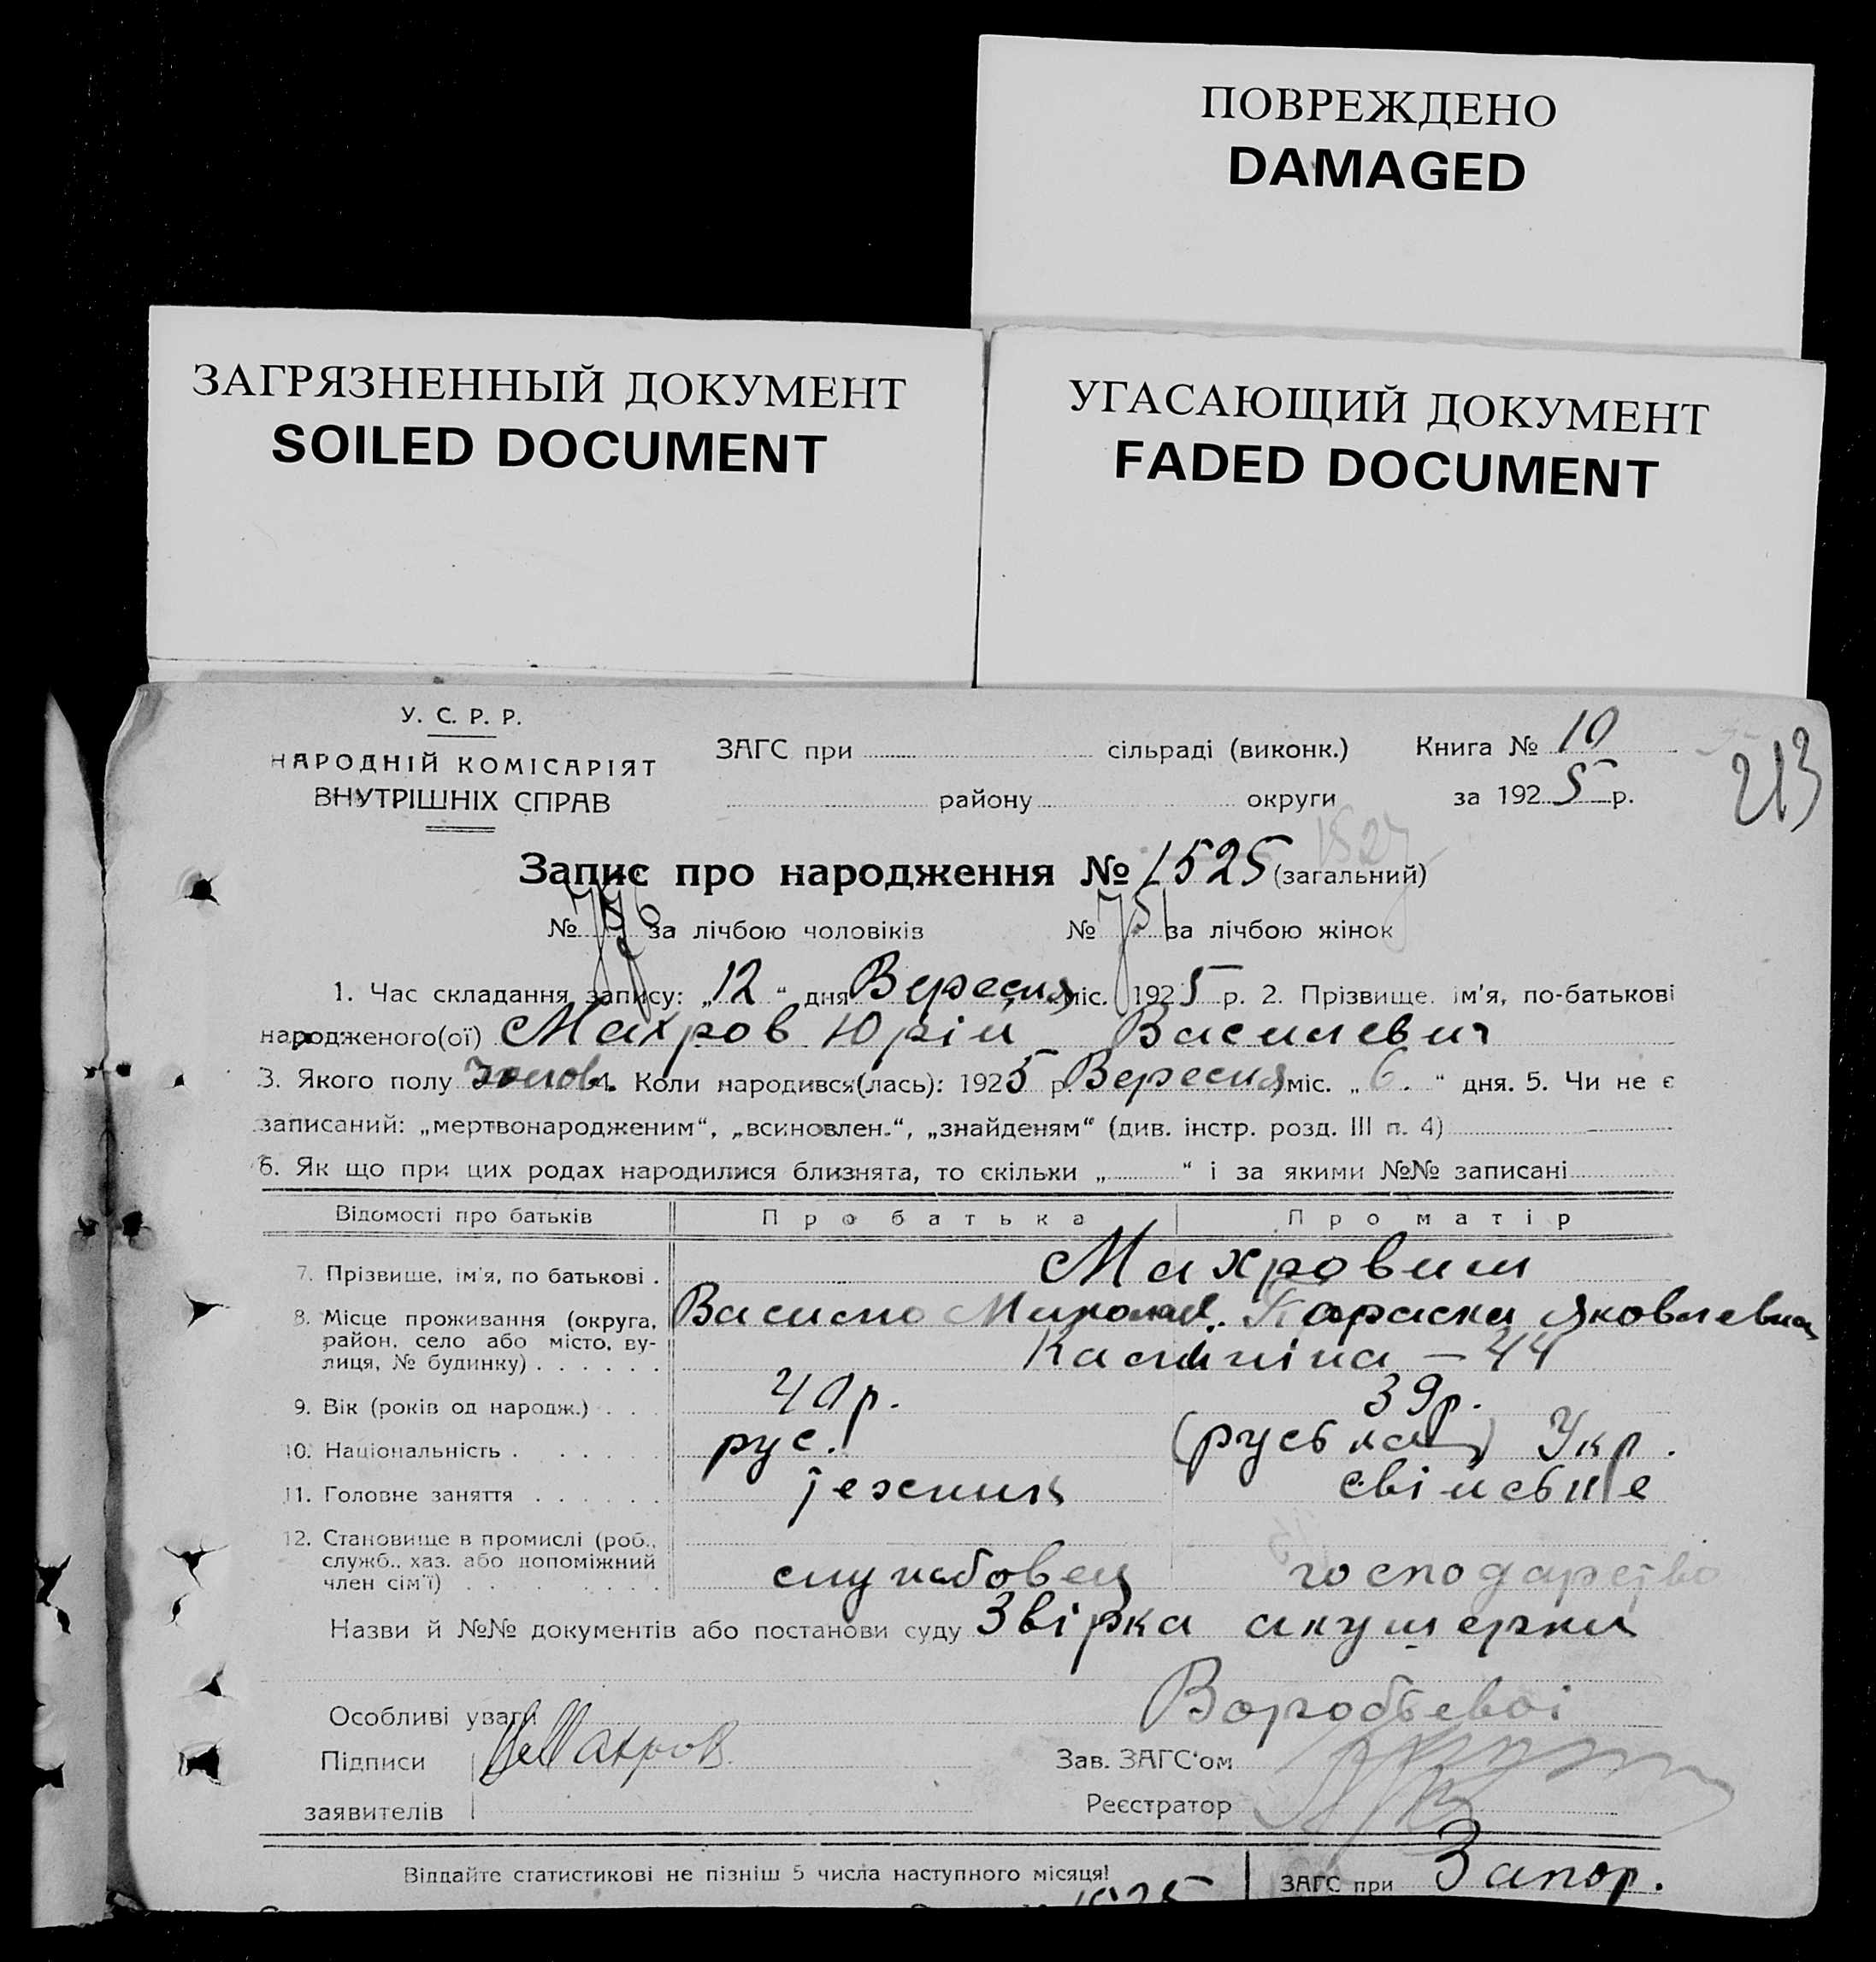 ПОВРЕЖДЕНО
DAMAGED
ЗАГРЯЗНЕННЫЙ ДОКУМЕНТ
SOILED DOCUMENT
УГАСАЮЩИЙ ДОКУМЕНТ
FADED DOCUMENT
У. С. Р. Р.
НАРОДНІЙ КОМІСАРІЯТ
ВНУТРІШНІХ СПРАВ
ЗАГС при сільраді (виконк.) Книга № 10
району округи за 1925 р.
213
Запис про народження № 1525 (загальний)
№ за лічбою чоловіків № 751 за лічбою жінок
1. Час складання запису: „12“ дня Вересня міс. 1925 р. 2. Прізвище, ім'я, по-батькові
народженого(ої) Махров Юрій Василевич
3. Якого полу чолов. 4. Коли народився(лась): 1925 р. Вересня міс. „6.“ дня. 5. Чи не є
записаний: „мертвонародженим“, „всиновлен.“, „знайденям“ (див. інстр. розд. III п. 4)
6. Як що при цих родах народилися близнята, то скільки „ “ і за якими №№ записані
Відомості про батьків Про батька Про матір
7. Прізвище, ім'я, по батькові . Махрови
8. Місце проживання (округа, район, село або місто, вулиця, № будинку) . . . . . . Василь Микола. Параска Яковлевна
44
9. Вік (років од народж.) . . . 40 р. 39 р.
10. Національність . . . . . . рус. (руська) Укр.
11. Головне заняття . . . . . . технік свійське
12. Становище в промислі (роб., служб., хаз. або допоміжний член сім'ї) . . . . . . службовец господарство
Назви й №№ документів або постанови суду Звірка акушерки
Воробьевої
Особливі уваги
Підписи Махров Зав. ЗАГС'ом
заявителів Реєстратор
Віддайте статистикові не пізніш 5 числа наступного місяця! ЗАГС при Запор.